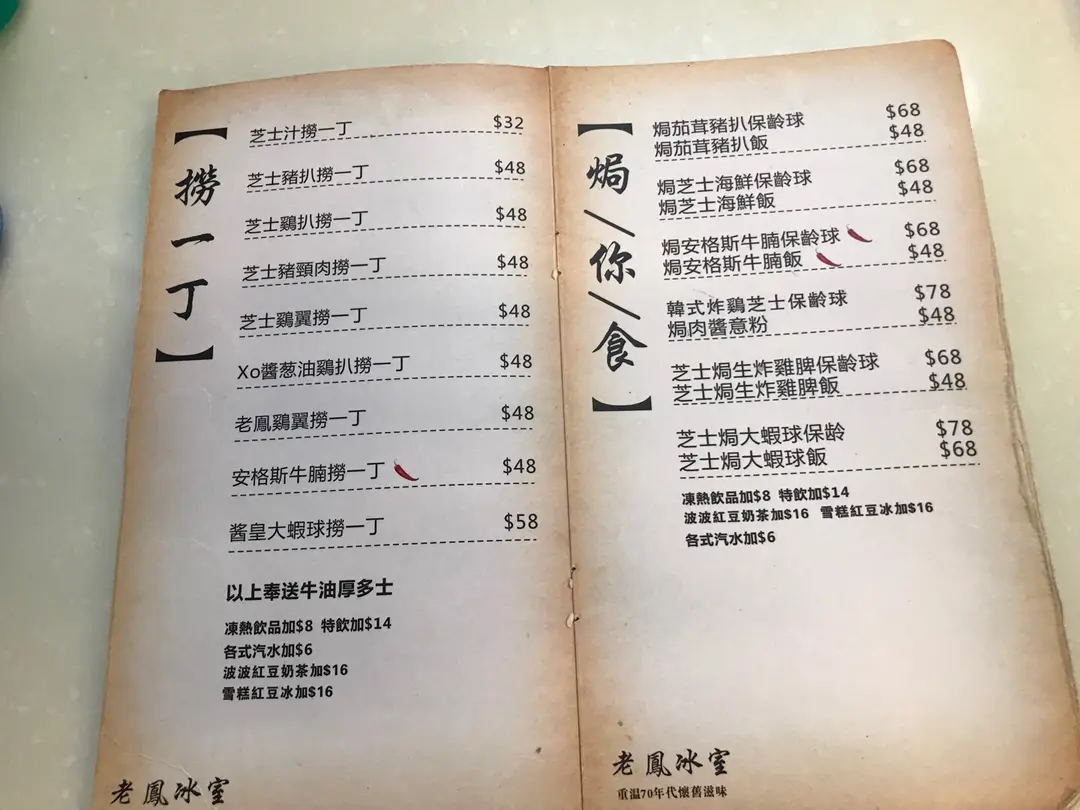 【撈一丁】
芝士汁撈一丁 $32
芝士豬扒撈一丁 $48
芝士鷄扒撈一丁 $48
芝士豬頸肉撈一丁 $48
芝士鷄翼撈一丁 $48
Xo醬葱油鷄扒撈一丁 $48
老鳳鷄翼撈一丁 $48
安格斯牛腩撈一丁 $48
酱皇大蝦球撈一丁 $58
以上奉送牛油厚多士
凍熱飲品加$8 特飲加$14
各式汽水加$6
波波紅豆奶茶加$16
雪糕紅豆冰加$16
老鳳冰室
【焗/你/食】
焗茄茸豬扒保齡球 $68
焗茄茸豬扒飯 $48
焗芝士海鮮保齡球 $68
焗芝士海鮮飯 $48
焗安格斯牛腩保齡球 $68
焗安格斯牛腩飯 $48
韓式炸鷄芝士保齡球 $78
焗肉醬意粉 $48
芝士焗生炸雞脾保齡球 $68
芝士焗生炸雞脾飯 $48
芝士焗大蝦球保齡 $78
芝士焗大蝦球飯 $68
凍熱飲品加$8 特飲加$14
波波紅豆奶茶加$16 雪糕紅豆冰加$16
各式汽水加$6
老鳳冰室
重温70年代懷舊滋味